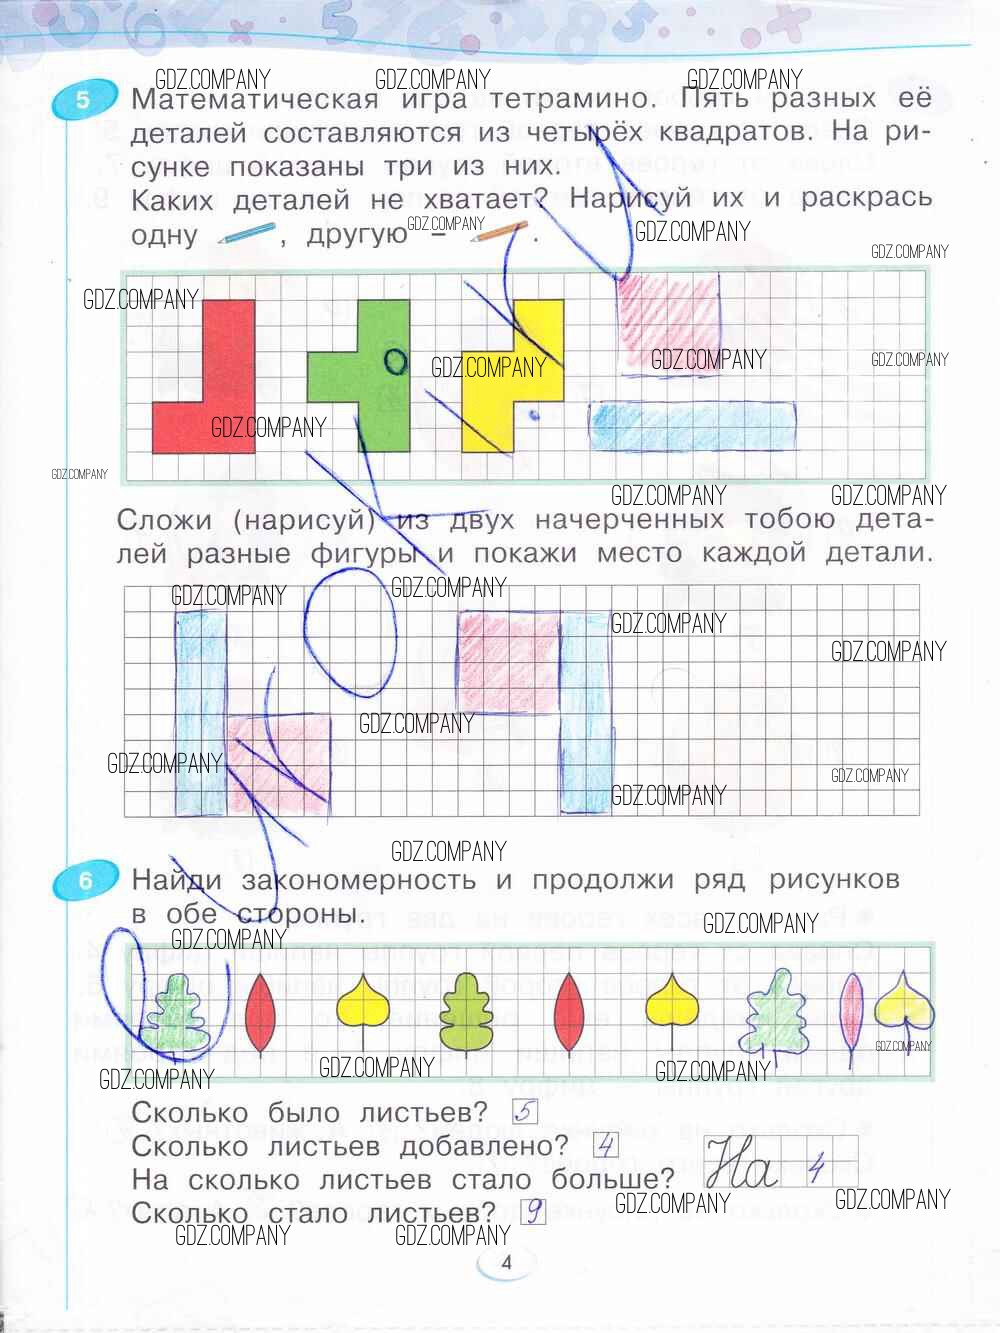 GDZ.COMPANY GDZ.COMPANY GDZ.COMPANY
5 Математическая игра тетрамино. Пять разных её
деталей составляются из четырёх квадратов. На ри-
сунке показаны три из них.
Каких деталей не хватает? Нарисуй их и раскрась
GDZ.COMPANY GDZ.COMPANY
одну , другую – .
GDZ.COMPANY
GDZ.COMPANY
GDZ.COMPANY GDZ.COMPANY GDZ.COMPANY
GDZ.COMPANY
GDZ.COMPANY
GDZ.COMPANY GDZ.COMPANY
Сложи (нарисуй) из двух начерченных тобою дета-
лей разные фигуры и покажи место каждой детали.
GDZ.COMPANY GDZ.COMPANY
GDZ.COMPANY
GDZ.COMPANY
GDZ.COMPANY
GDZ.COMPANY GDZ.COMPANY
GDZ.COMPANY
GDZ.COMPANY
6 Найди закономерность и продолжи ряд рисунков
в обе стороны.
GDZ.COMPANY
GDZ.COMPANY
GDZ.COMPANY
GDZ.COMPANY GDZ.COMPANY GDZ.COMPANY
Сколько было листьев? 5
Сколько листьев добавлено? 4
На сколько листьев стало больше? На 4
GDZ.COMPANY GDZ.COMPANY
Сколько стало листьев? 9
GDZ.COMPANY GDZ.COMPANY
4